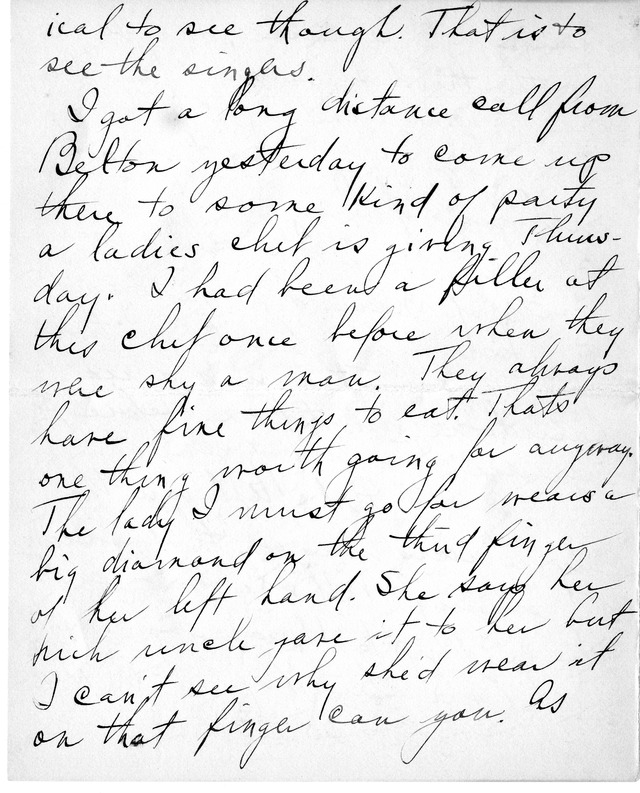 ical to see though. That is to
see the singers.
I got a long distance call from
Belton yesterday to come up
there to some kind of party
a ladies club is giving Thurs-
day. I had been a filler at
this club once before when they
were shy a man. They always
have fine things to eat. Thats
one thing worth going for anyway.
The lady I must go for wears a
big diamond on the third finger
of her left hand. She says her
rich uncle gave it to her but
I can't see why she'd wear it
on that finger can you. As